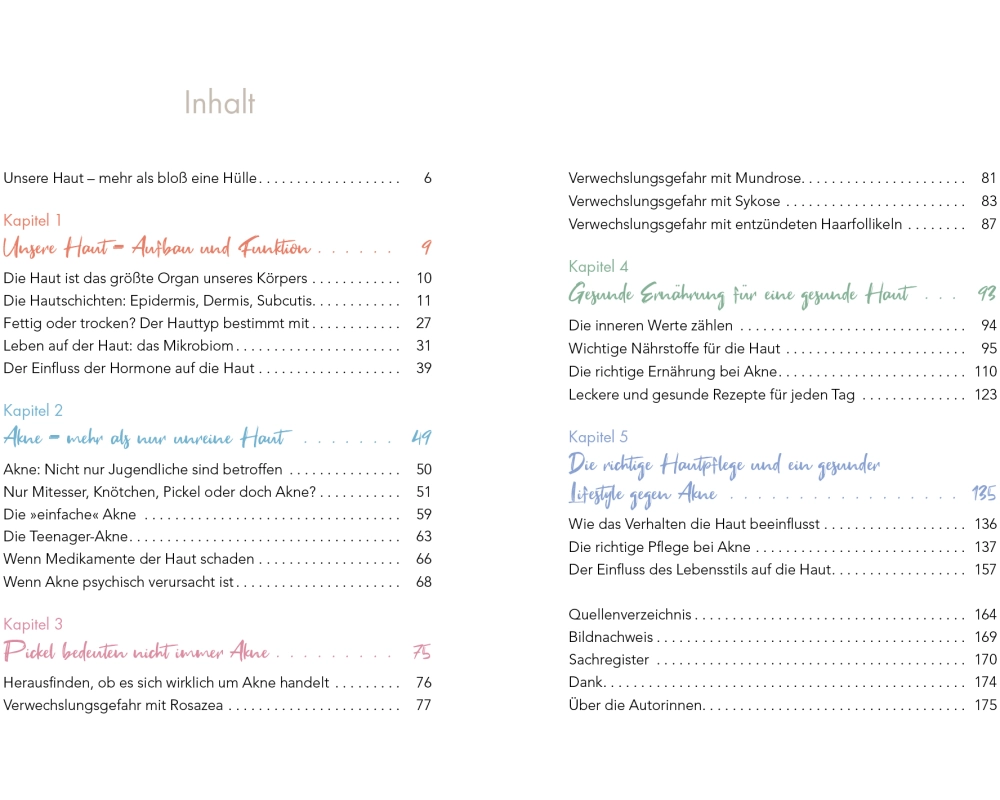 Inhalt
Unsere Haut – mehr als bloß eine Hülle . . . . . . . . . . . . . . . . . . . 6
Kapitel 1
Unsere Haut – Aufbau und Funktion . . . . . . 9
Die Haut ist das größte Organ unseres Körpers . . . . . . . . . . . . 10
Die Hautschichten: Epidermis, Dermis, Subcutis. . . . . . . . . . . . 11
Fettig oder trocken? Der Hauttyp bestimmt mit . . . . . . . . . . . . 27
Leben auf der Haut: das Mikrobiom . . . . . . . . . . . . . . . . . . . . . . 31
Der Einfluss der Hormone auf die Haut . . . . . . . . . . . . . . . . . . . 39
Kapitel 2
Akne – mehr als nur unreine Haut . . . . . . . 49
Akne: Nicht nur Jugendliche sind betroffen . . . . . . . . . . . . . . . 50
Nur Mitesser, Knötchen, Pickel oder doch Akne? . . . . . . . . . . . 51
Die »einfache« Akne . . . . . . . . . . . . . . . . . . . . . . . . . . . . . . . . . . 59
Die Teenager-Akne. . . . . . . . . . . . . . . . . . . . . . . . . . . . . . . . . . . . 63
Wenn Medikamente der Haut schaden . . . . . . . . . . . . . . . . . . . 66
Wenn Akne psychisch verursacht ist . . . . . . . . . . . . . . . . . . . . . . 68
Kapitel 3
Pickel bedeuten nicht immer Akne . . . . . . . . . 75
Herausfinden, ob es sich wirklich um Akne handelt . . . . . . . . . 76
Verwechslungsgefahr mit Rosazea . . . . . . . . . . . . . . . . . . . . . . . 77
Verwechslungsgefahr mit Mundrose. . . . . . . . . . . . . . . . . . . . . . 81
Verwechslungsgefahr mit Sykose . . . . . . . . . . . . . . . . . . . . . . . . 83
Verwechslungsgefahr mit entzündeten Haarfollikeln . . . . . . . . 87
Kapitel 4
Gesunde Ernährung für eine gesunde Haut . . . 93
Die inneren Werte zählen . . . . . . . . . . . . . . . . . . . . . . . . . . . . . . 94
Wichtige Nährstoffe für die Haut . . . . . . . . . . . . . . . . . . . . . . . . 95
Die richtige Ernährung bei Akne. . . . . . . . . . . . . . . . . . . . . . . . . 110
Leckere und gesunde Rezepte für jeden Tag . . . . . . . . . . . . . . 123
Kapitel 5
Die richtige Hautpflege und ein gesunder
Lifestyle gegen Akne . . . . . . . . . . . . . . . . . 135
Wie das Verhalten die Haut beeinflusst . . . . . . . . . . . . . . . . . . . 136
Die richtige Pflege bei Akne . . . . . . . . . . . . . . . . . . . . . . . . . . . . 137
Der Einfluss des Lebensstils auf die Haut. . . . . . . . . . . . . . . . . . 157
Quellenverzeichnis . . . . . . . . . . . . . . . . . . . . . . . . . . . . . . . . . . . . 164
Bildnachweis . . . . . . . . . . . . . . . . . . . . . . . . . . . . . . . . . . . . . . . . . 169
Sachregister . . . . . . . . . . . . . . . . . . . . . . . . . . . . . . . . . . . . . . . . . 170
Dank. . . . . . . . . . . . . . . . . . . . . . . . . . . . . . . . . . . . . . . . . . . . . . . . 174
Über die Autorinnen. . . . . . . . . . . . . . . . . . . . . . . . . . . . . . . . . . . 175